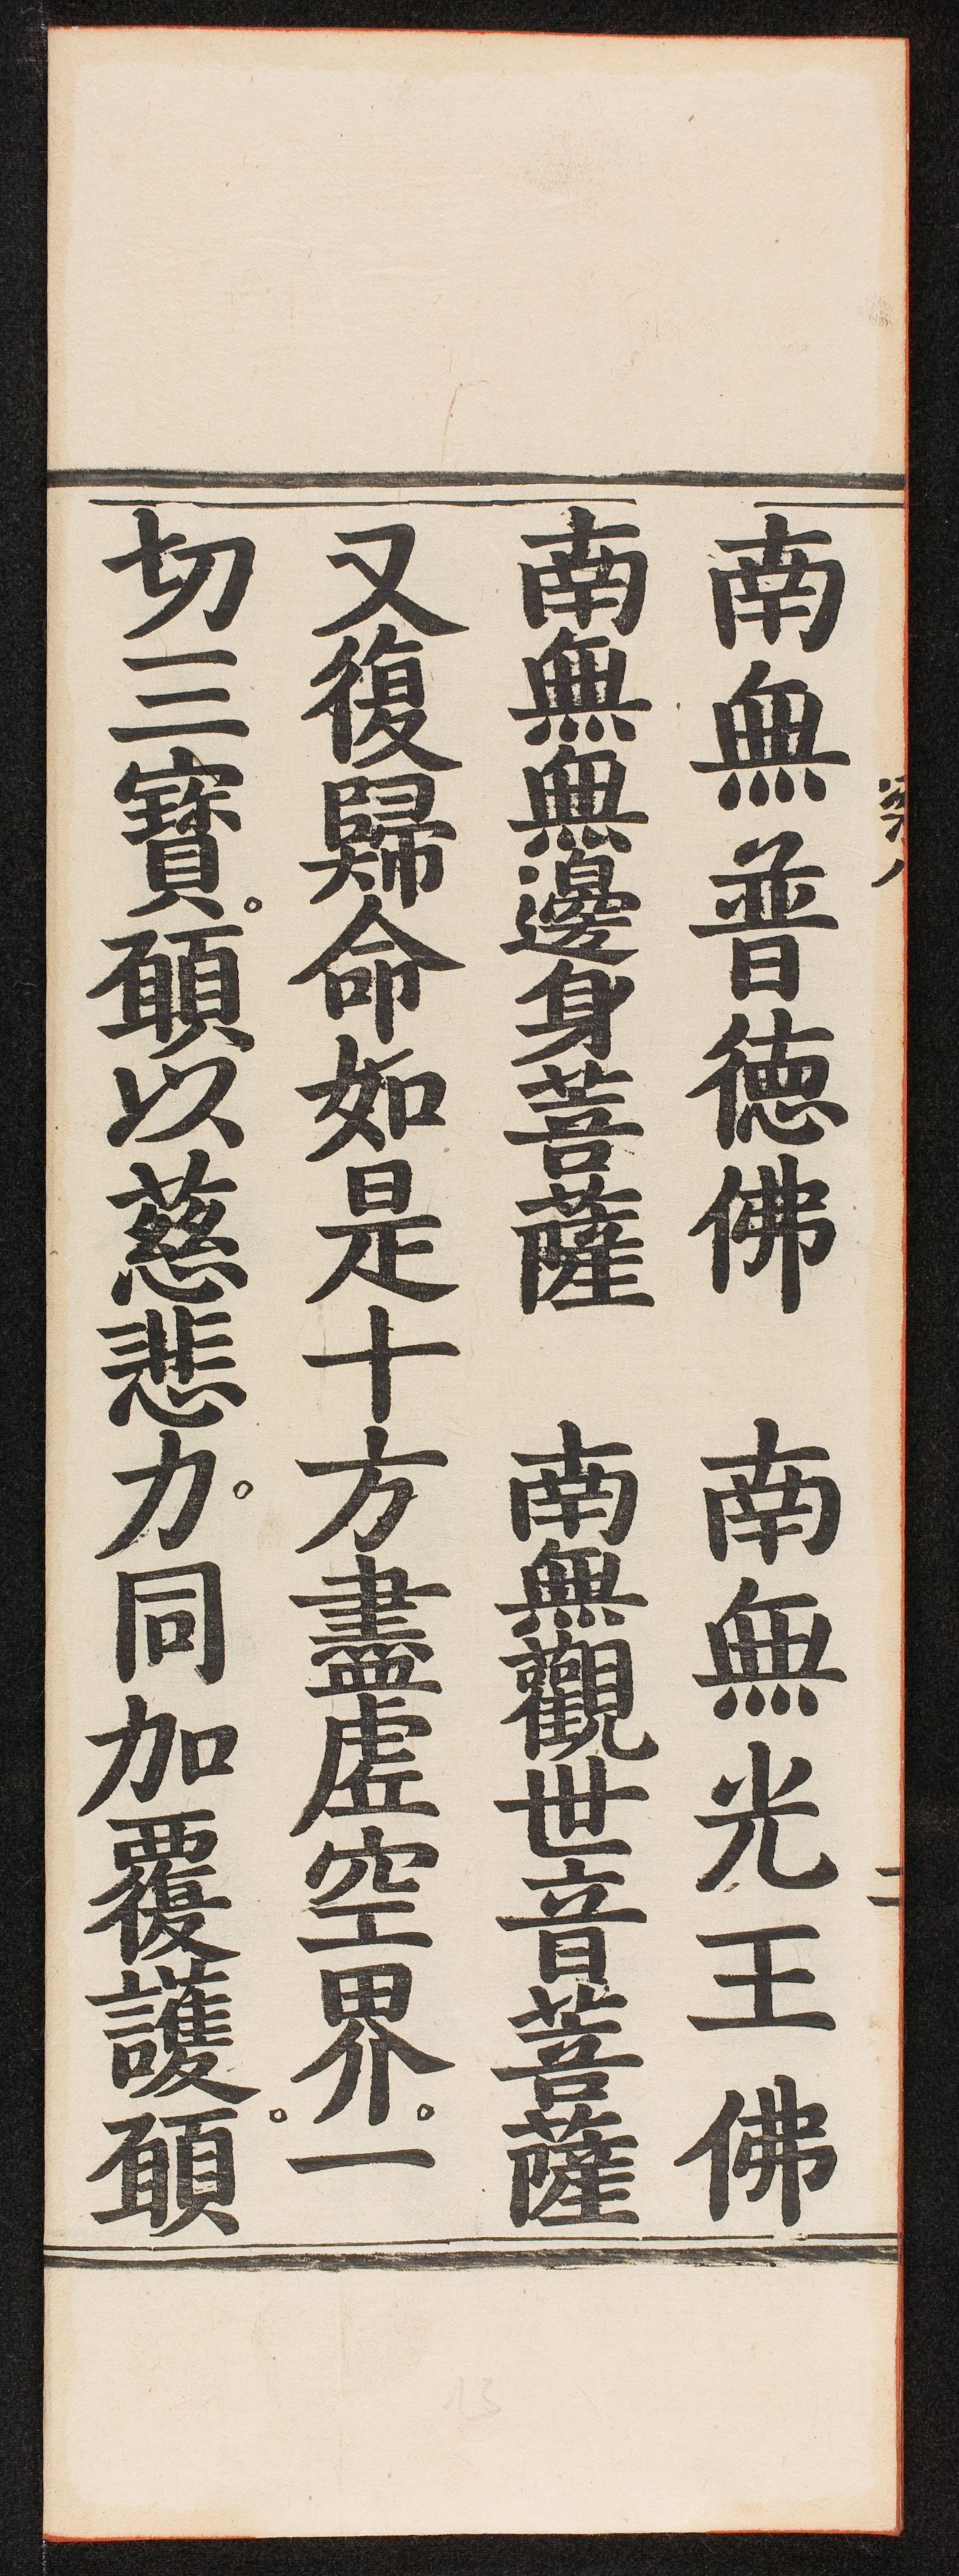 南無普德佛　南無光王佛
南無無邊身菩薩　南無觀世音菩薩
又復歸命如是十方盡虛空界。一
切三寶。願以慈悲力。同加覆護。願
二
13